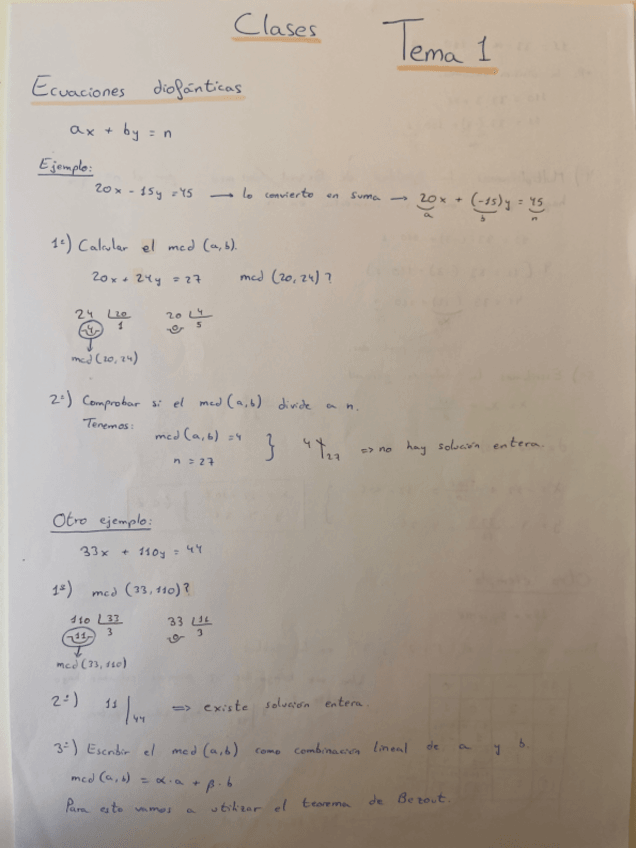 Clases
Tema 1
Ecuaciones diofánticas
ax + by = n
Ejemplo:
20x - 15y = 45 → lo convierto en suma → 20x + (-15)y = 45
a b n
1º) Calcular el mcd (a,b).
20x + 24y = 27 mcd (20,24)?
24 20 20 4
4 1 0 5
mcd (20,24)
2º) Comprobar si el mcd (a,b) divide a n.
Tenemos:
mcd (a,b) = 4
n = 27
} 4 ∤ 27 => no hay solución entera.
Otro ejemplo:
33x + 110y = 44
1º) mcd (33,110)?
110 33 33 11
11 3 0 3
mcd (33,110)
2º) 11 | 44 => existe solución entera.
3º) Escribir el mcd (a,b) como combinación lineal de a y b.
mcd (a,b) = α·a + β·b
Para esto vamos a utilizar el teorema de Bezout.